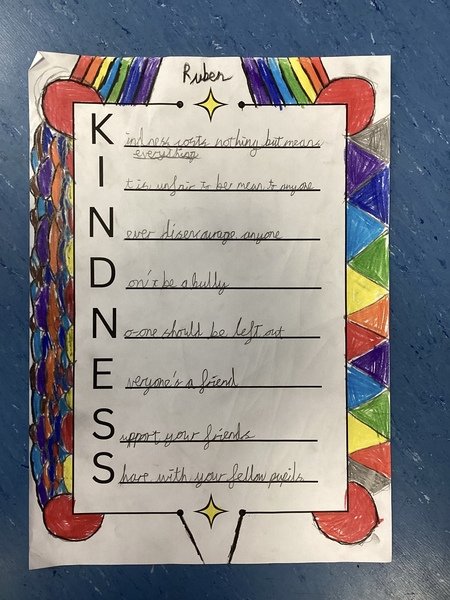 Ruben
Kindness costs nothing but means
everything
It is unfair to be mean to anyone
Never disencourage anyone
Don't be a bully
No-one should be left out
Everyone's a friend
Support your friends
Share with your fellow pupils